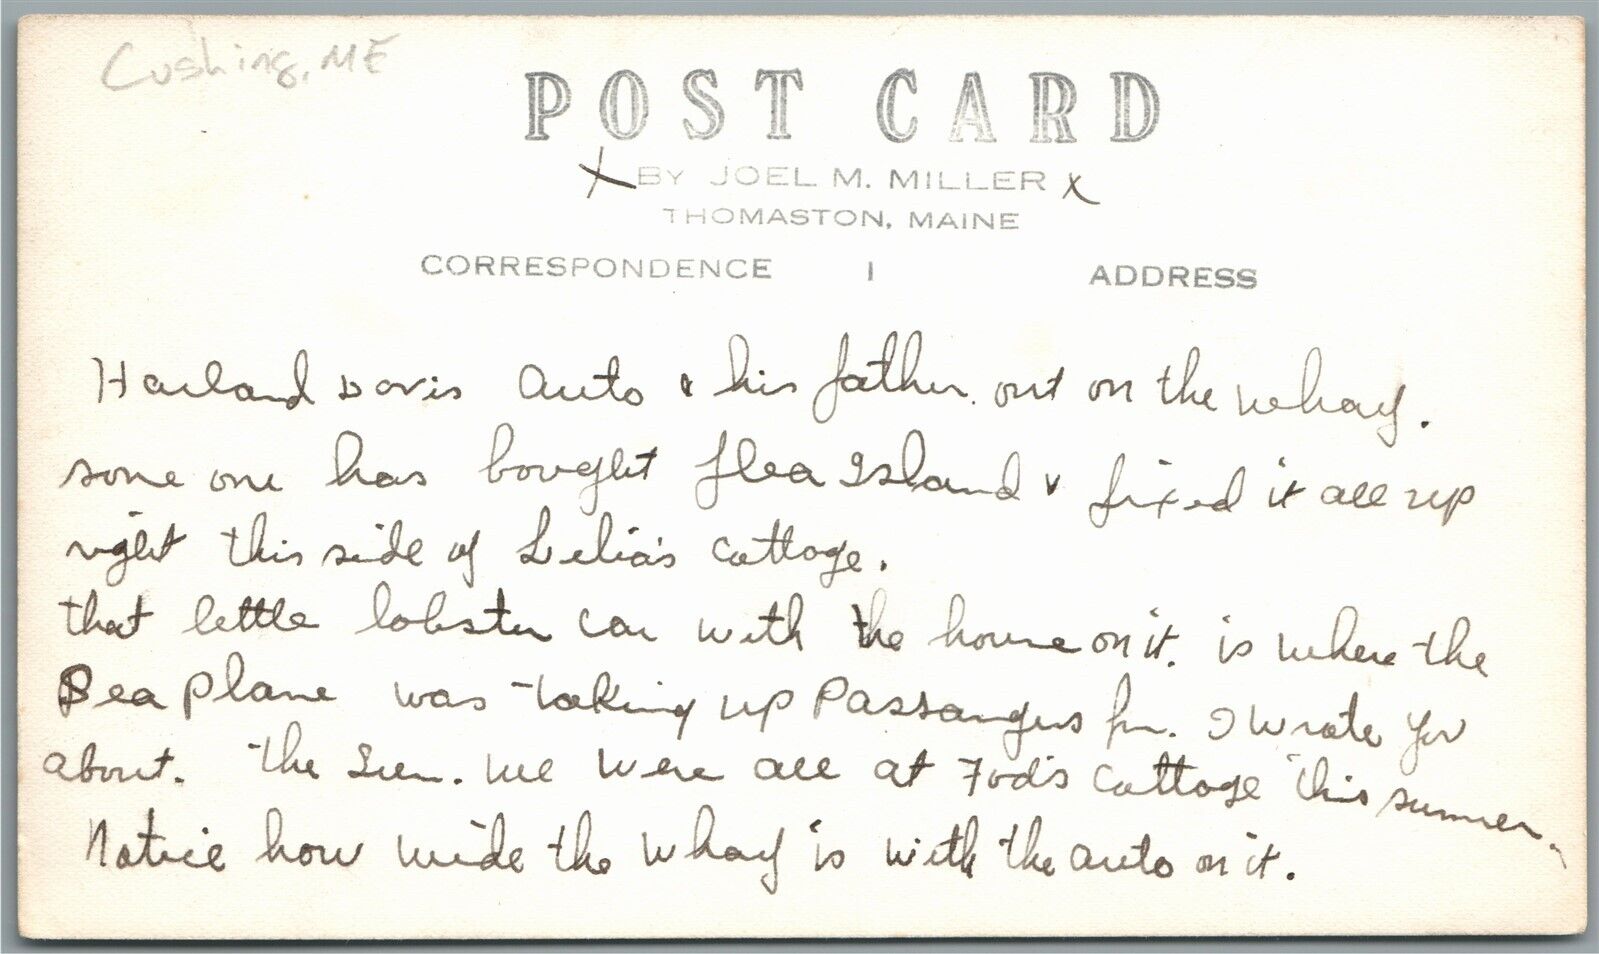 Cushing, ME
POST CARD
X BY JOEL M. MILLER X
THOMASTON, MAINE
CORRESPONDENCE | ADDRESS
Harland Davis Auto & his father out on the wharf.
some one has bought flea Island & fixed it all up
right this side of Lelia's Cottage.
that little lobster car with the house on it. is where the
Sea plane was taking up Passangers for. I wrote you
about. The Sun. we were all at Fod's Cottage this summer.
Notice how wide the wharf is with the auto on it.